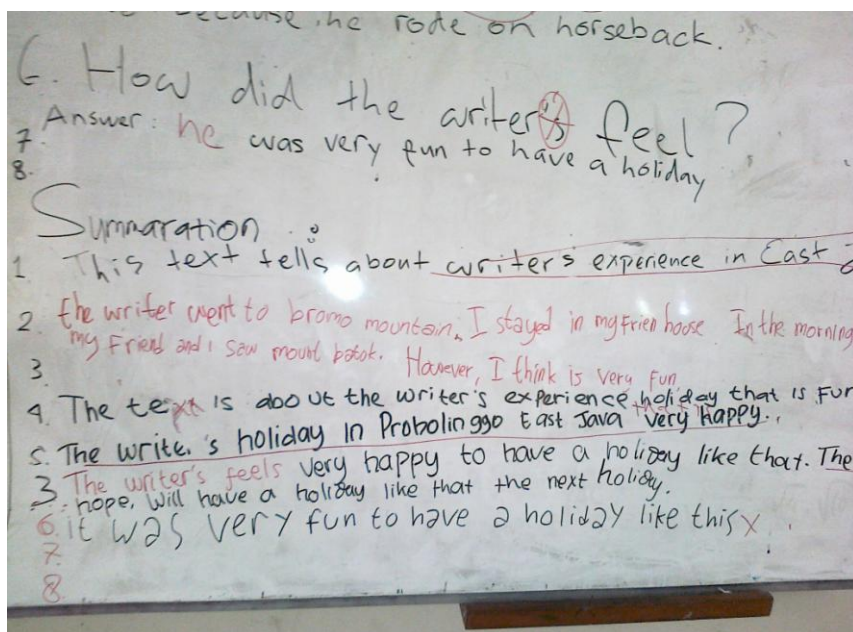 because he rode on horseback.
6. How did the writer's feel?
Answer: he was very fun to have a holiday
7.
8.
Summaration :
1. This text tells about writer's experience in East
2. the writer went to bromo mountain, I stayed in my Frien hoose In the morning
my Friend and I saw mount batok. However, I think is very Fun
3.
4. The text is about the writer's experience holiday that is Fun
5. The write.'s holiday in Probolinggo East Java very happy..
3 The writer's feels very happy to have a holiday like that. The
hope, will have a holiday like that the next holiday.
6. it was very fun to have a holiday like this x
7.
8